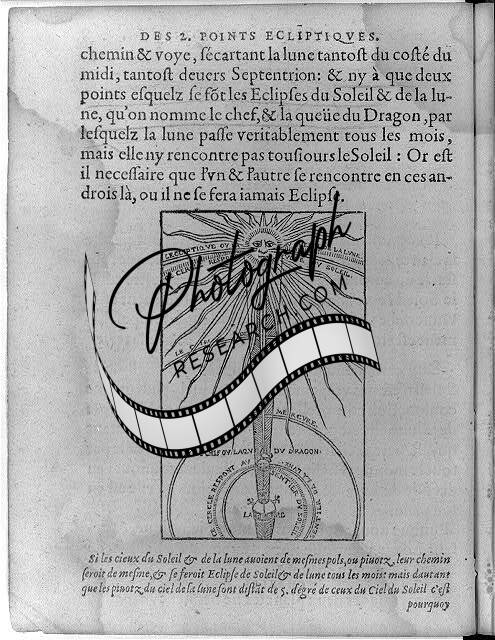 DES 2. POINTS ECLIPTIQVES.
chemin & voye, sécartant la lune tantost du costé du
midi, tantost deuers Septentrion: & ny à que deux
points esquelz se fõt les Eclipses du Soleil & de la lu-
ne, qu'on nomme le chef, & la queüe du Dragon, par
lesquelz la lune passe veritablement tous les mois,
mais elle ny rencontre pas tousiours le Soleil : Or est
il necessaire que l'vn & l'autre se rencontre en ces an-
drois là, ou il ne se fera iamais Eclipse.
LECLIPTIQVE OV
DE LA LVNE
SOLEIL
Photograph
RESEARCH.COM
MERCVRE
DV DRAGON
LE CERCLE RESPONT AV
SENTIER DV SOLEIL
Si les cieux du Soleil & de la lune auoient de mesmes pols, ou piuotz, leur chemin
seroit de mesme, & se feroit Eclipse de Soleil & de lune tous les mois: mais dautant
que les piuotz du ciel de la lune sont distãt de 5. degré de ceux du Ciel du Soleil c'est
pourquoy